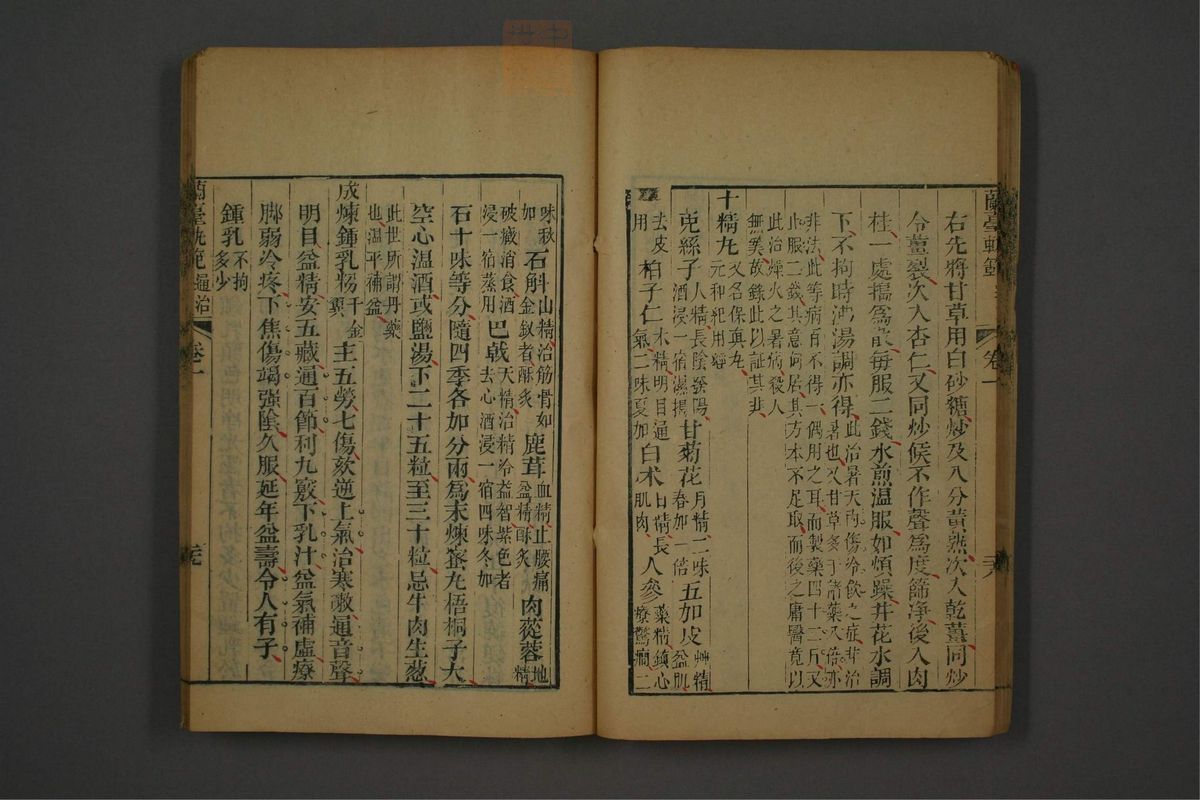 右先將甘草用白砂糖炒及八分黃熟次入乾薑同炒
令薑裂次入杏仁又同炒候不作聲為度篩淨後入肉
桂一處擣為散每服二錢水煎温服如煩躁井花水調
下不拘時沸湯調亦得此治暑天内傷冷飲之症非治
暑也以甘草多于諸藥八倍亦
非法此等病百不得一偶用之耳而製藥四十二斤又
止服二錢其意何居其方本不足取而後之庸醫竟以
此治燥火之暑病殺人
無筭故錄此以証其非
十精丸又名保真丸
元和紀用經
兎絲子人精長陰發陽
酒浸一宿濕搗甘菊花月精二味
春加一倍五加皮艸精
益肌
去皮
用柏子仁木精明目通
氣二味夏加白术日精長
肌肉人參藥精鎮心
療驚癎二
味秋
如石斛山精治筋骨如
金釵者酥炙鹿茸血精止腰痛
益精酥炙肉蓯蓉地
精
破癥消食酒
浸一宿蒸用巴戟天精治精冷益智紫色者
去心酒浸一宿四味冬加
石十味等分隨四季各加分兩為末煉蜜丸梧桐子大
空心温酒或鹽湯下二十五粒至三十粒忌牛肉生葱
此世所謂丹藥
也温平補益
成煉鍾乳粉千金
翼主五勞七傷欬逆上氣治寒嗽通音聲
明目益精安五藏通百節利九竅下乳汁益氣補虛療
脚弱冷疼下焦傷竭强陰久服延年益壽令人有子
鍾乳不拘
多少
蘭臺軌範通治
卷一